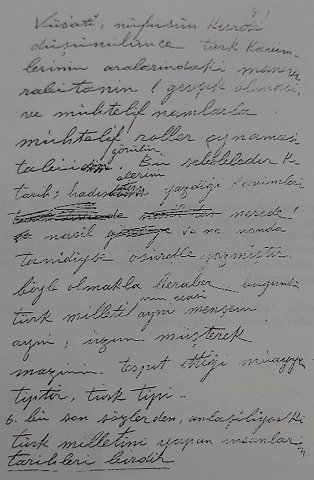 Vüsati, nüfusun kesreti
düşünülünce türk kavim-
lerinin aralarındaki manevi
rabıtanın gevşek olması,
ve muhtelif namlarla
muhtelif roller oynaması
tabii görülür. Bu sebebledir ki
tarih; hadiselerini yazdığı kavimleri
nerede!
nasıl ve ne namda
tanıdıysa osuretle yazmıştır.
böyle olmakla beraber bugünkü
türk milleti nin esası aynı menşein
aynı, uzun müşterek
mazinin tespit ettiği muayyen
tiptir, türk tipi..
6- bu son sözlerden, anlaşılıyor ki
türk milletini yapan insanların
tarihleri birdir